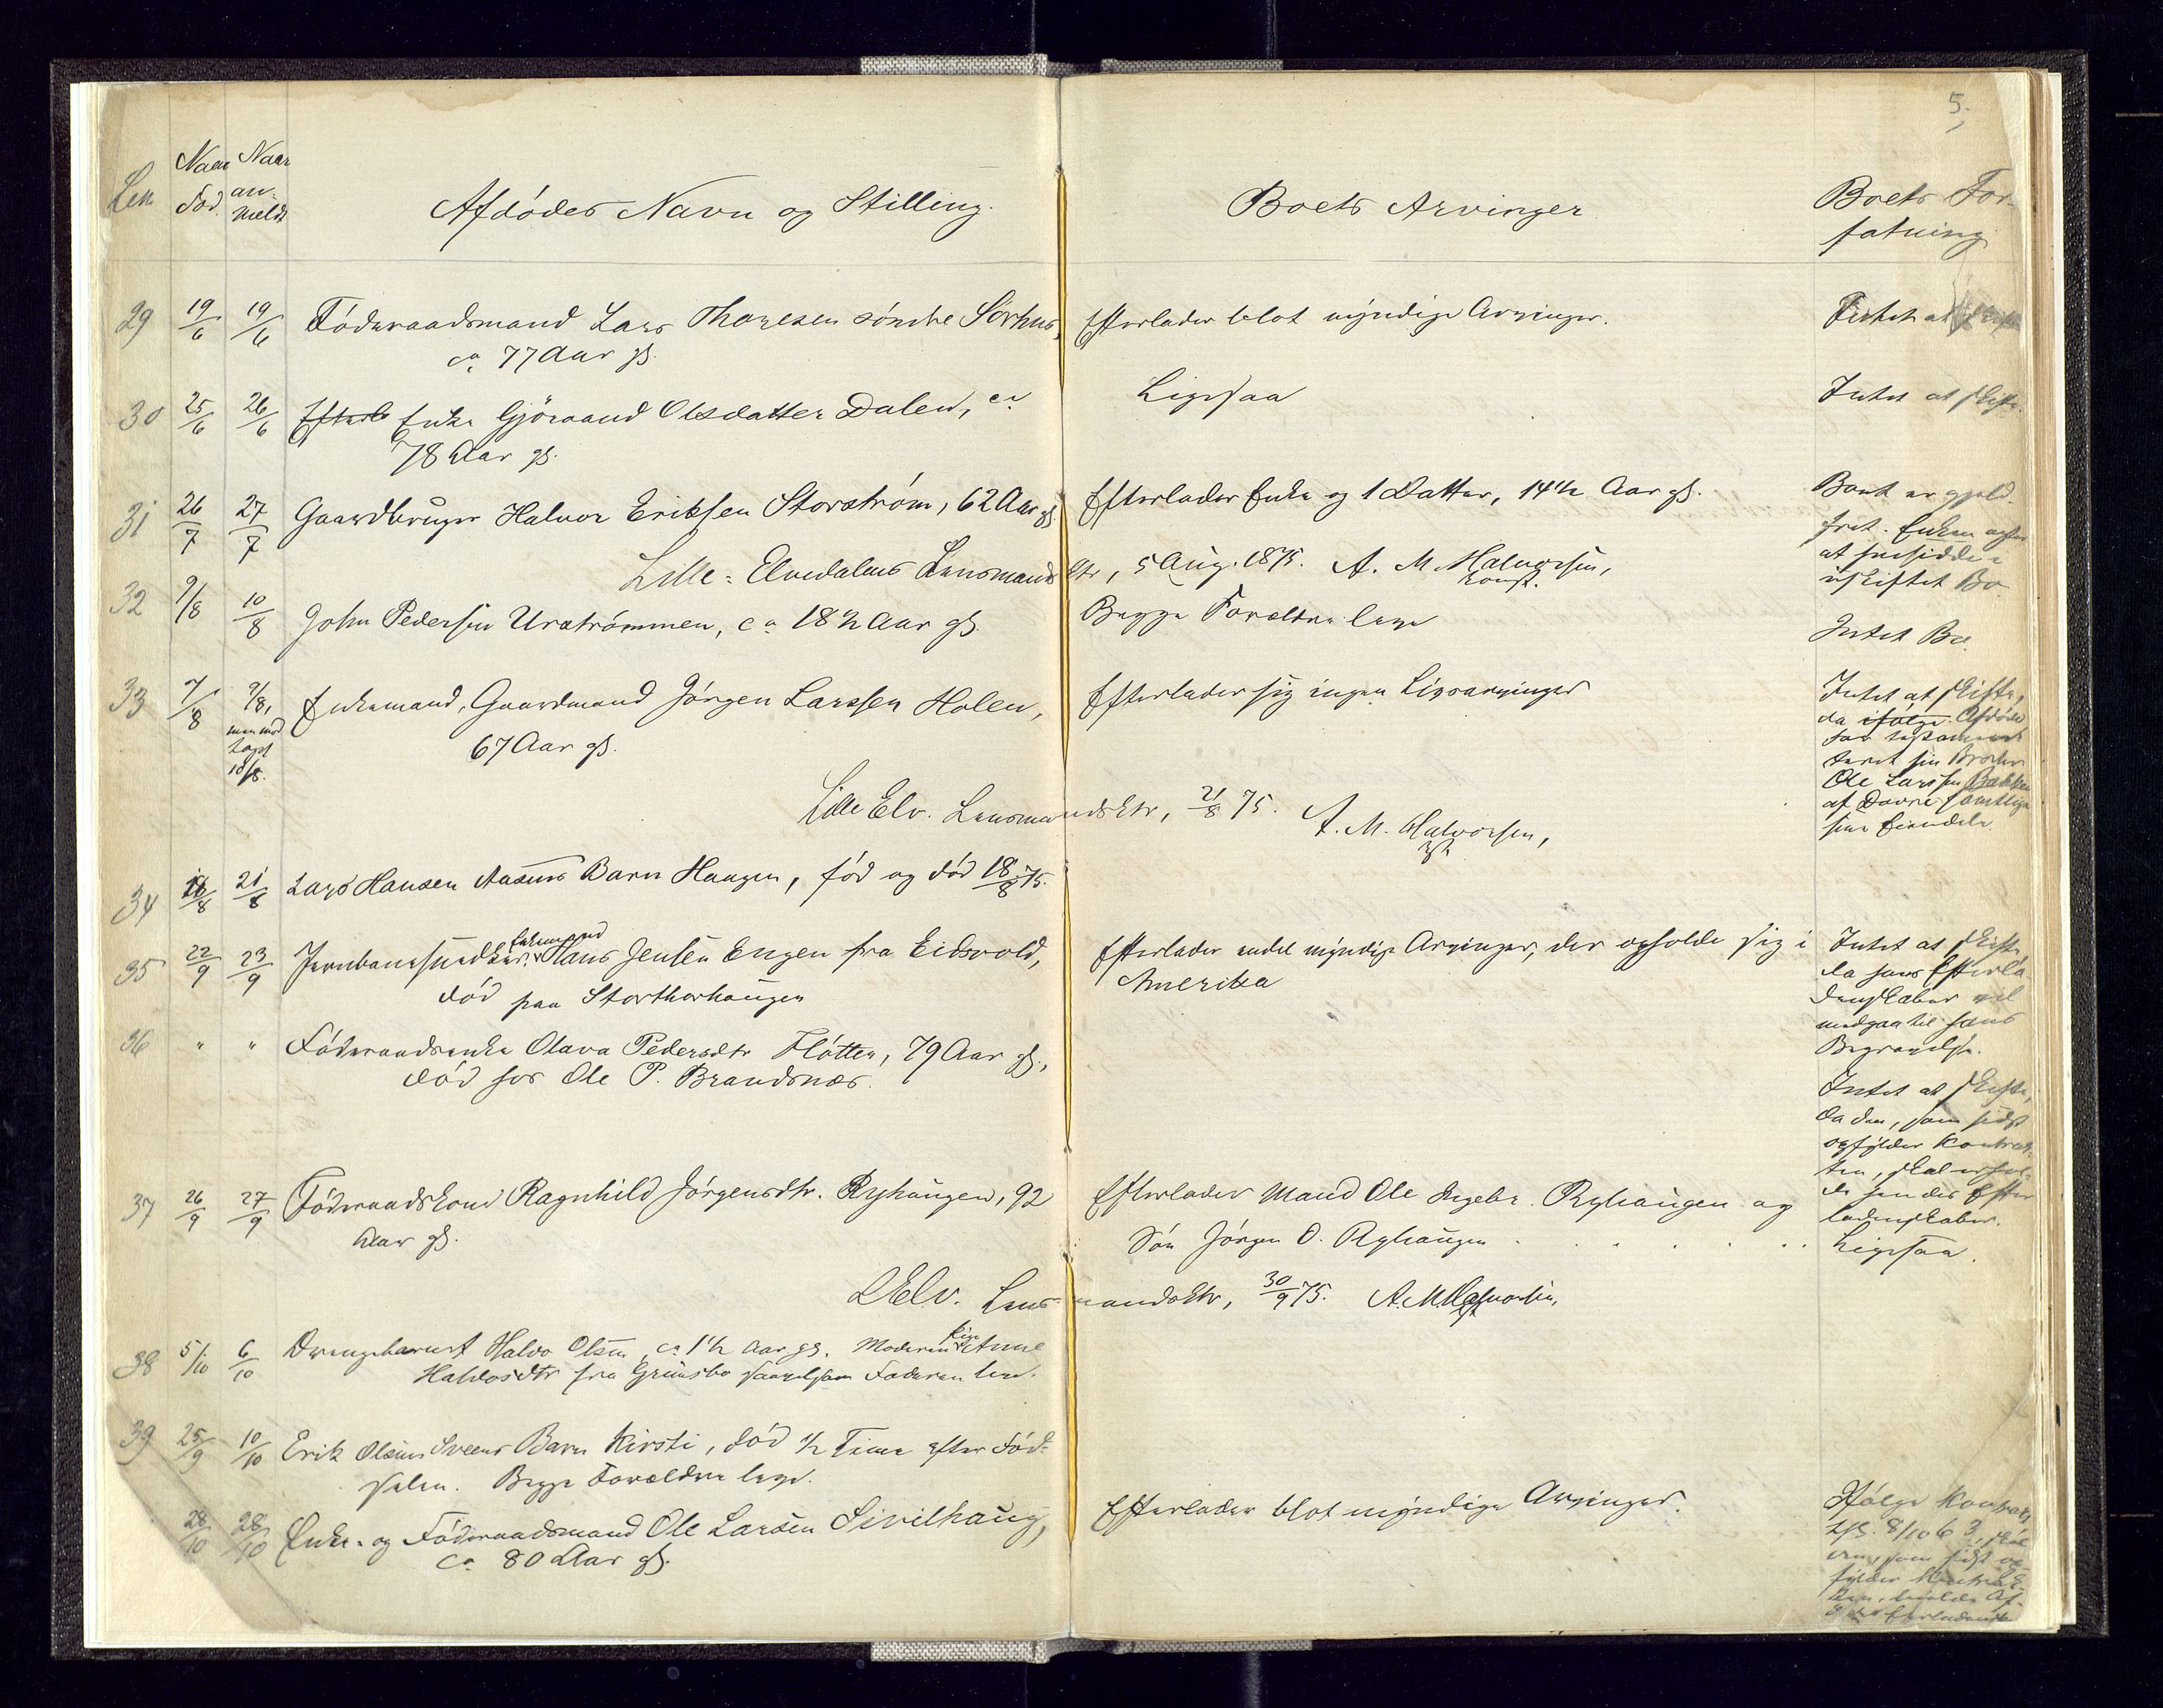 5.
Løn
Naar
Død.
Naar
an-
meldt
Afdødes Navn og Stilling.
Boets Arvinger
Boets For-
fatning
29 19/6 19/6 Föderaadsmand Lars Thoresen söndre Sörhus,
ca 77 Aar gl.
Efterlader blot myndige Arvinger.
Intet at
30 25/6 26/6 Efterl Enke Gjöraand Olsdatter Dalen, ca
78 Aar gl.
Ligesaa
Intet at skifte.
31 26/7 27/7 Gaardbruger Halvor Eriksen Storström, 62 Aar gl.
Efterlader Enke og 1 Datter, 14 1/2 Aar gl.
Boet er gjæld-
frit. Enken agter
at hensidde i
uskiftet Bo
Lille-Elvedalens Lensmandsktr, 5 Aug. 1875. A. M. Halvorsen,
konst.
32 9/8 10/8 John Pedersen Urströmmen, ca 18 1/2 Aar gl.
Begge Forældre leve
Intet Bo.
33 7/8 9/8, Enkemand, Gaardmand Jörgen Larssen Holen,
men mod
tagt
18/8.
67 Aar gl.
Efterlader sig ingen Livsarvinger
Intet at skifte,
da ifölge Afdöde
har testamen
teret sin Broder
Ole Larssen Bakken
af Dovre samtlige
sine Eiendele.
Lille Elv. Lensmandsktr, 21/8 75. A. M. Halvorsen,
kst
34 18/8 21/8 Lars Hansen Barn Haugen, född og död 18/8 75.
35 22/9 23/9 Jernbanesnedker Enkemand Hans Jensen Engen fra Eidsvold,
död paa Storthorhaugen
Efterlader endel myndige Arvinger, der opholde sig i
Amerika
Intet at skifte
da hans Efterla-
denskaber vil
medgaa til hans
Begravelse.
36 " " Föderaadsenke Olava Pedersdtr Flötten, 79 Aar gl.,
död hos Ole P. Brandsnes.
Intet at skifte,
da den, som sidst
opfylder Kontrak-
ten, skal erhol-
de hendes Efter
ladenskaber.
37 26/9 27/9 Föderaadskone Ragnhild Jörgensdtr. Ryhaugen, 92
Aar gl.
Efterlader Mand Ole Ingebr. Ryhaugen og
Sön Jörgen O. Ryhaugen
Ligesaa.
LElv. Lensmandsktr, 30/9 75. A. M. Halvorsen,
kst
38 5/10 6/10 Drengebarnet Halvo Olsen, ca 1 1/2 Aar gl. Moderen Pige Anne
Halvosdtr fra Grimsbo saavelsom Faderen leve.
39 25/9 10/10 Erik Olsens Sveens Barn Kirsti, död 1/2 Time efter Föd-
selen. Begge Forældre leve.
28/10 28/10 Enke- og Föderaadsmand Ole Larsen Sivilhaug,
ca 80 Aar gl.
Efterlader blot myndige Arvinger.
Ifölge Kontrakt
8/10 63, skal
den, som sidst op
fylder Kontrak-
ten, beholde Af-